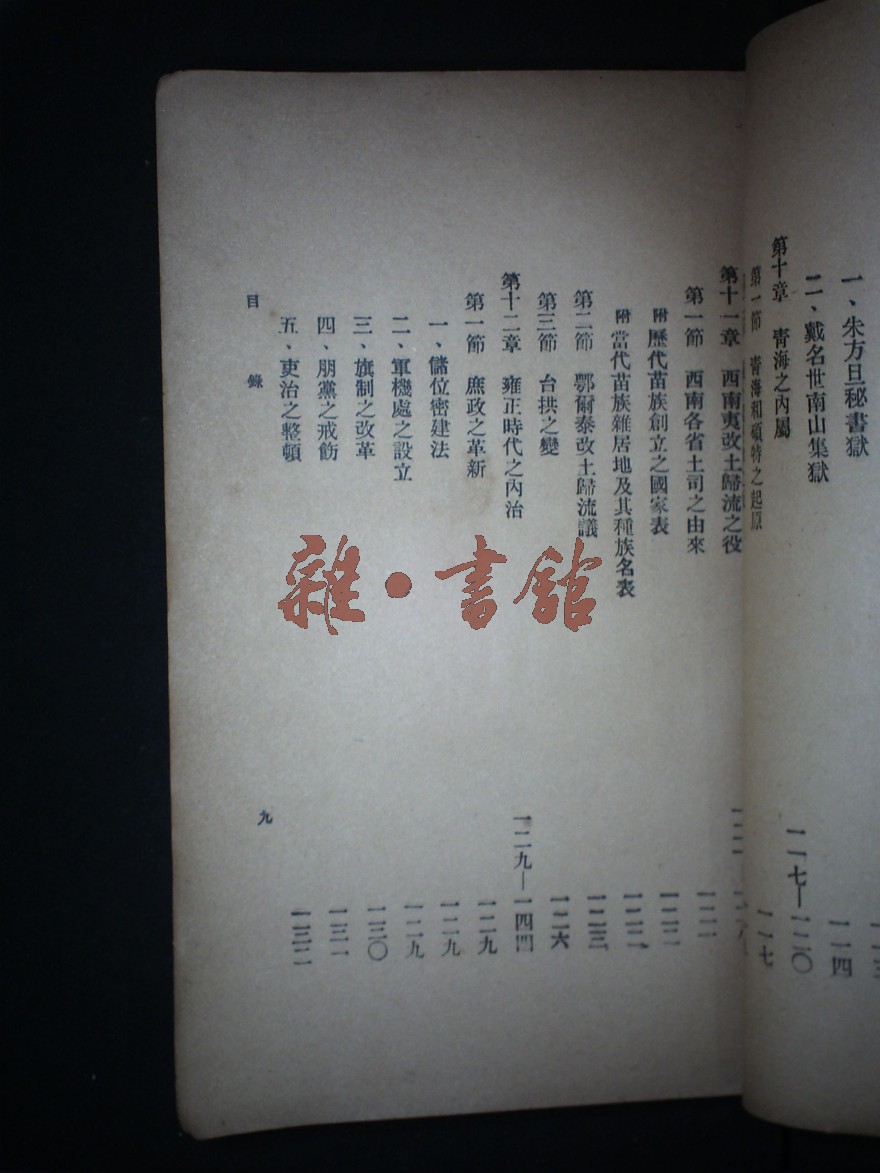 一、朱方旦秘書獄
二、戴名世南山集獄 一一四
第十章 青海之內屬 一一七—一二〇
第一節 青海和碩特之起原 一一七
第十一章 西南夷改土歸流之役
第一節 西南各省土司之由來 一二一
附歷代苗族創立之國家表 一二二
附當代苗族雜居地及其種族名表 一二二
第二節 鄂爾泰改土歸流議 一二三
第三節 台拱之變 一二六
第十二章 雍正時代之內治 一二九—一四四
第一節 庶政之革新 一二九
一、儲位密建法 一二九
二、軍機處之設立 一二九
三、旗制之改革 一三〇
四、朋黨之戒飭 一三一
五、吏治之整頓 一三二
目錄 九
雜·書館